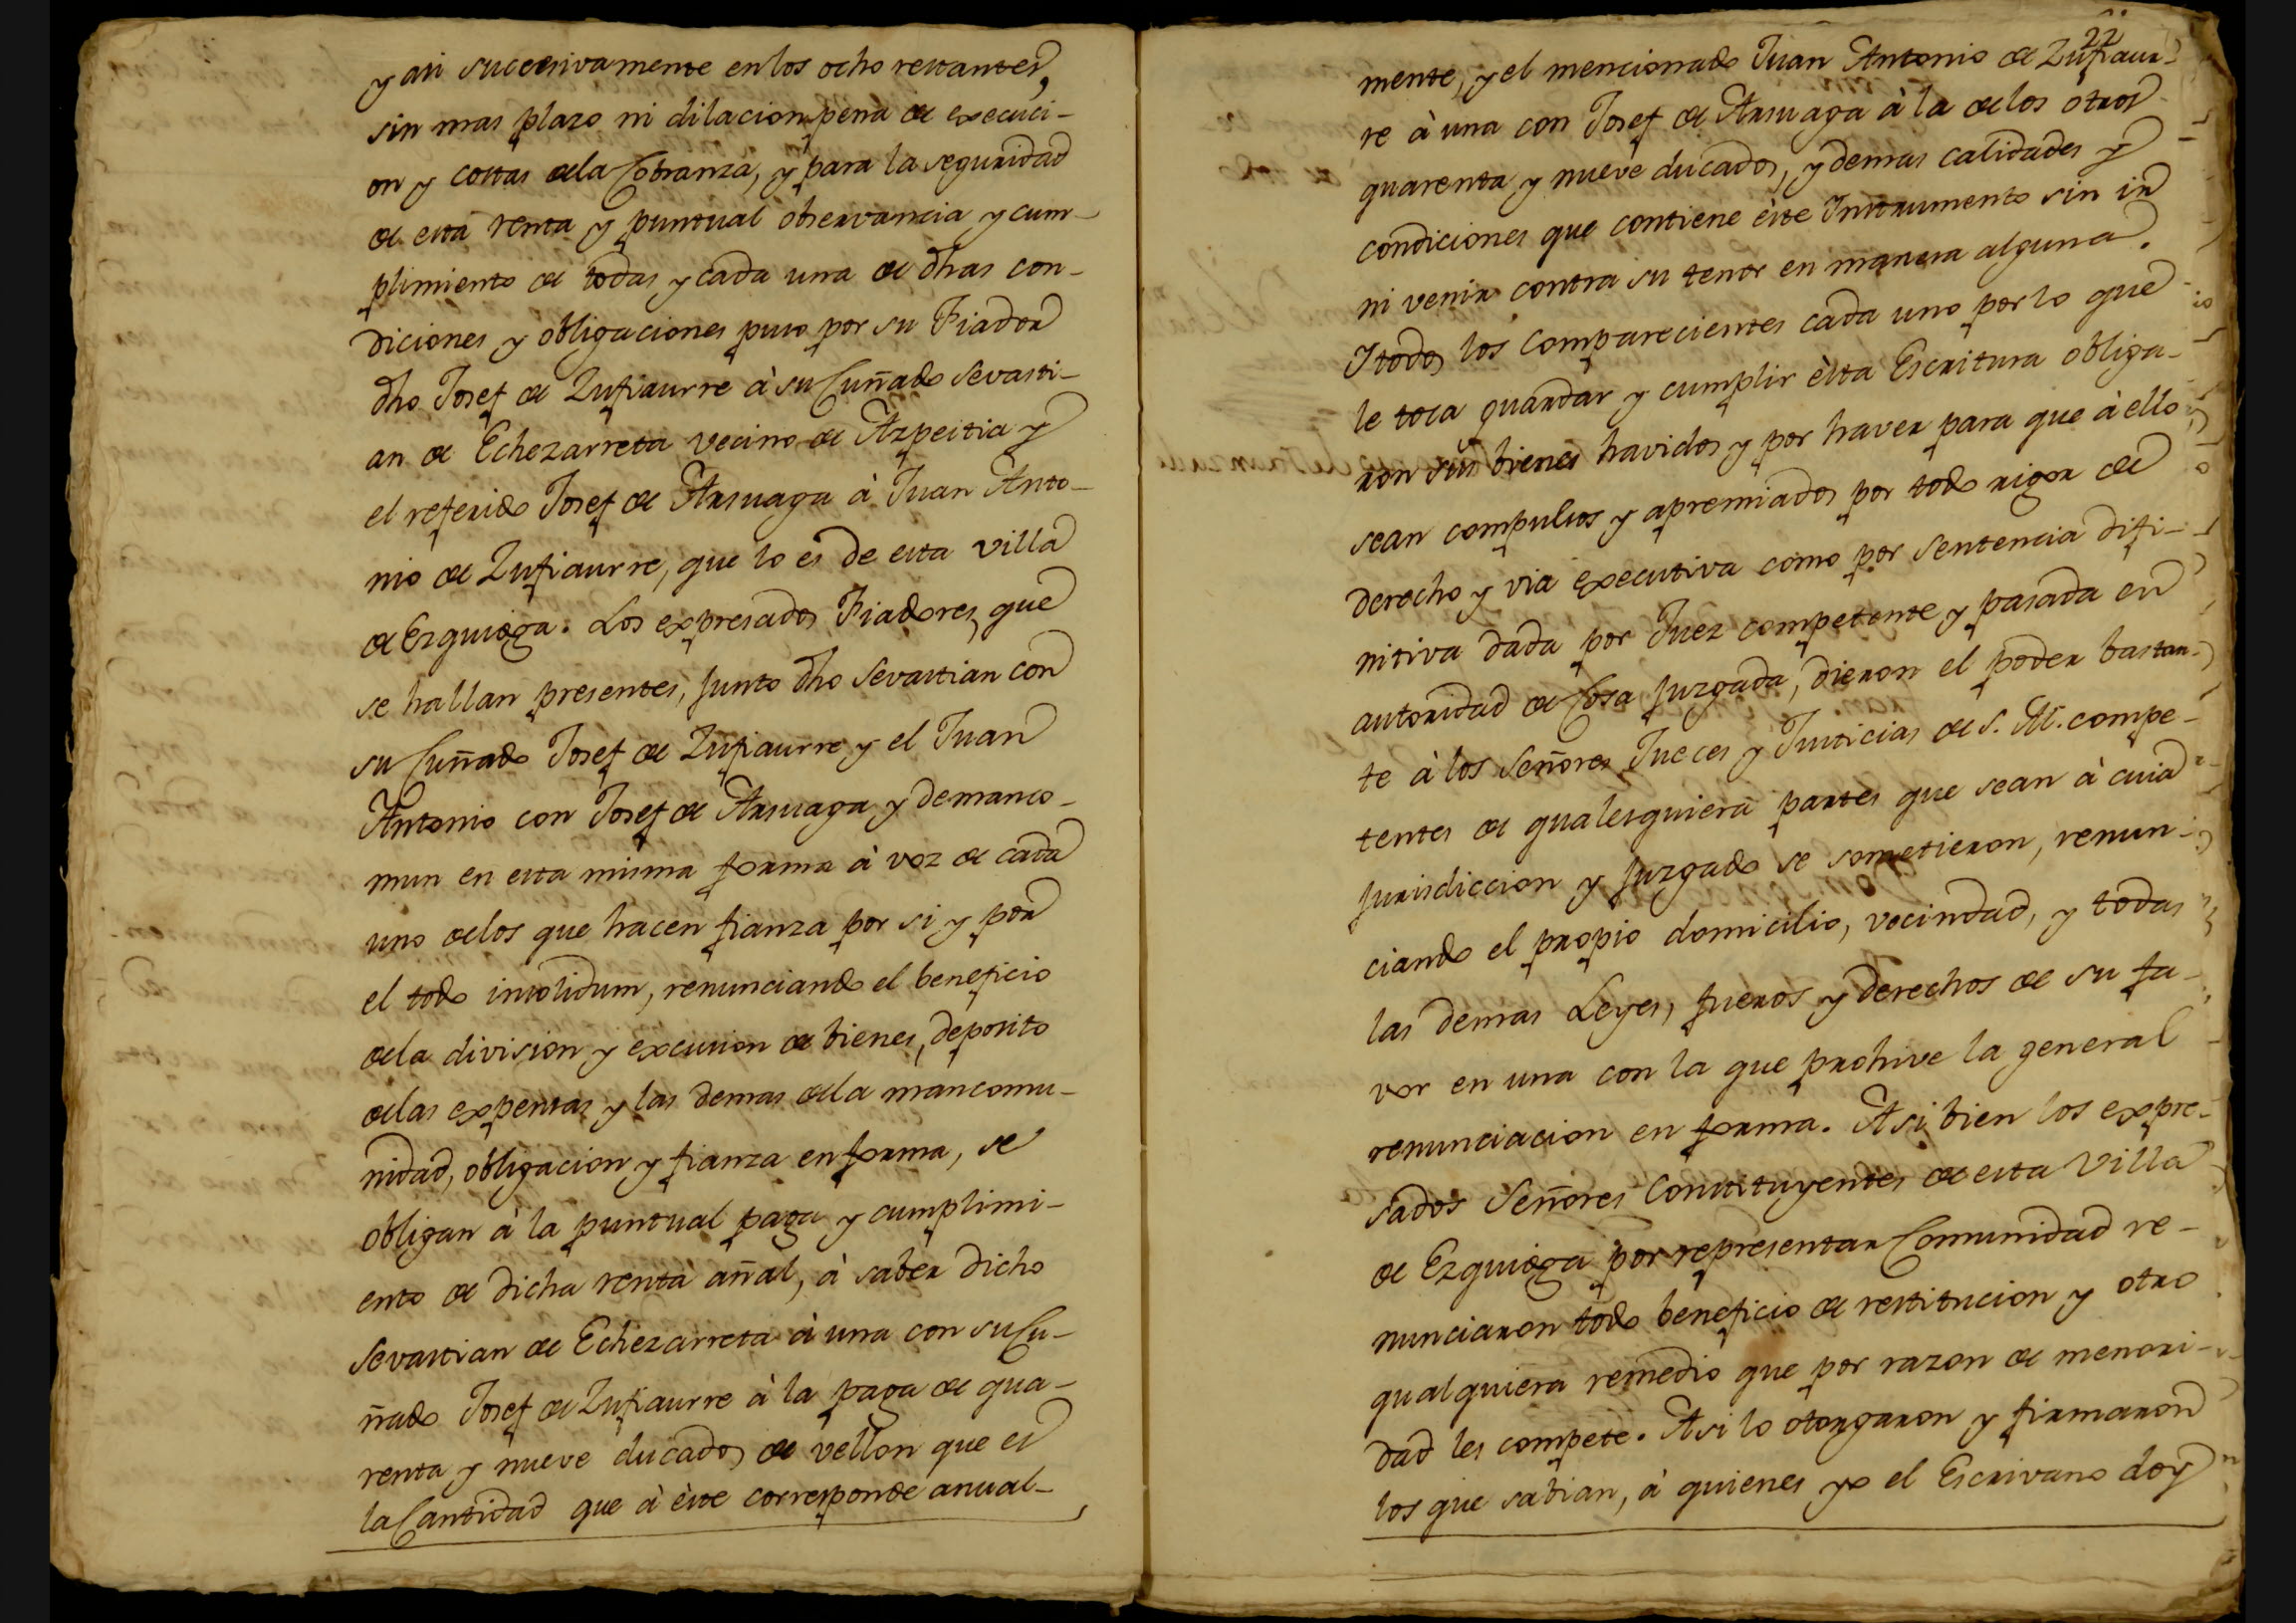 y asi succesivamente en los ocho restantes,
sin mas plazo ni dilacion, pena de execuci-
on y costas dela Cobranza, y para la seguridad
de esta renta y puntual observancia y cum-
plimiento de todas y cada una de dhas con-
diciones y obligaciones puso por su Fiador
dho Josef de Zufiaurre à su Cuñado Sevasti-
an de Echezarreta vecino de Azpeitia y
el referido Josef de Arsuaga à Juan Anto-
nio de Zufiaurre, que lo es de esta villa
de Ezquioga. Los expresados Fiadores, que
se hallan presentes, junto dho Sevastian con
su Cuñado Josef de Zufiaurre y el Juan
Antonio con Josef de Arsuaga y demanco-
mun en esta misma forma à voz de cada
uno delos que hacen fianza por si y por
el todo insolidum, renunciando el beneficio
dela division y excusion de bienes, deposito
delas expensas y las demas dela mancomu-
nidad, obligacion y fianza en forma, se
obligan à la puntual paga y cumplimi-
ento de dicha renta añal, à saber dicho
Sevastian de Echezarreta à una con su Cu-
ñado Josef de Zufiaurre à la paga de qua-
renta y nueve ducados de vellon que es
la Cantidad que à èste corresponde anual-
22
mente, y el mencionado Juan Antonio de Zufiaur-
re à una con Josef de Arsuaga à la delos otros
quarenta y nueve ducados, y demas calidades y
condiciones que contiene èste Instrumento sin ir
ni venir contra su tenor en manera alguna.
I todos los Comparecientes cada uno por lo que
le toca guardar y cumplir èsta Escritura obliga-
ron sus bienes havidos y por haver para que à ello
sean compulsos y apremiados por todo rigor de
derecho y via executiva como por Sentencia difi-
nitiva dada por Juez competente y pasada en
autoridad de Cosa juzgada, dieron el poder bastan-
te à los Señores Jueces y Justicias de S. M. compe-
tentes de qualesquiera partes que sean à cuia
jurisdiccion y juzgado se sometieron, renun-
ciando el propio domicilio, vecindad, y todas
las demas Leyes, fueros y derechos de su fa-
vor en una con la que prohive la general
renunciacion en forma. Asi bien los expre-
sados Señores Constituyentes de esta Villa
de Ezquioga por representar Comunidad re-
nunciaron todo beneficio de restitucion y otro
qualquiera remedio que por razon de menori-
dad les compete. Asi lo otorgaron y firmaron
los que sabian, à quienes yo el Escrivano doy